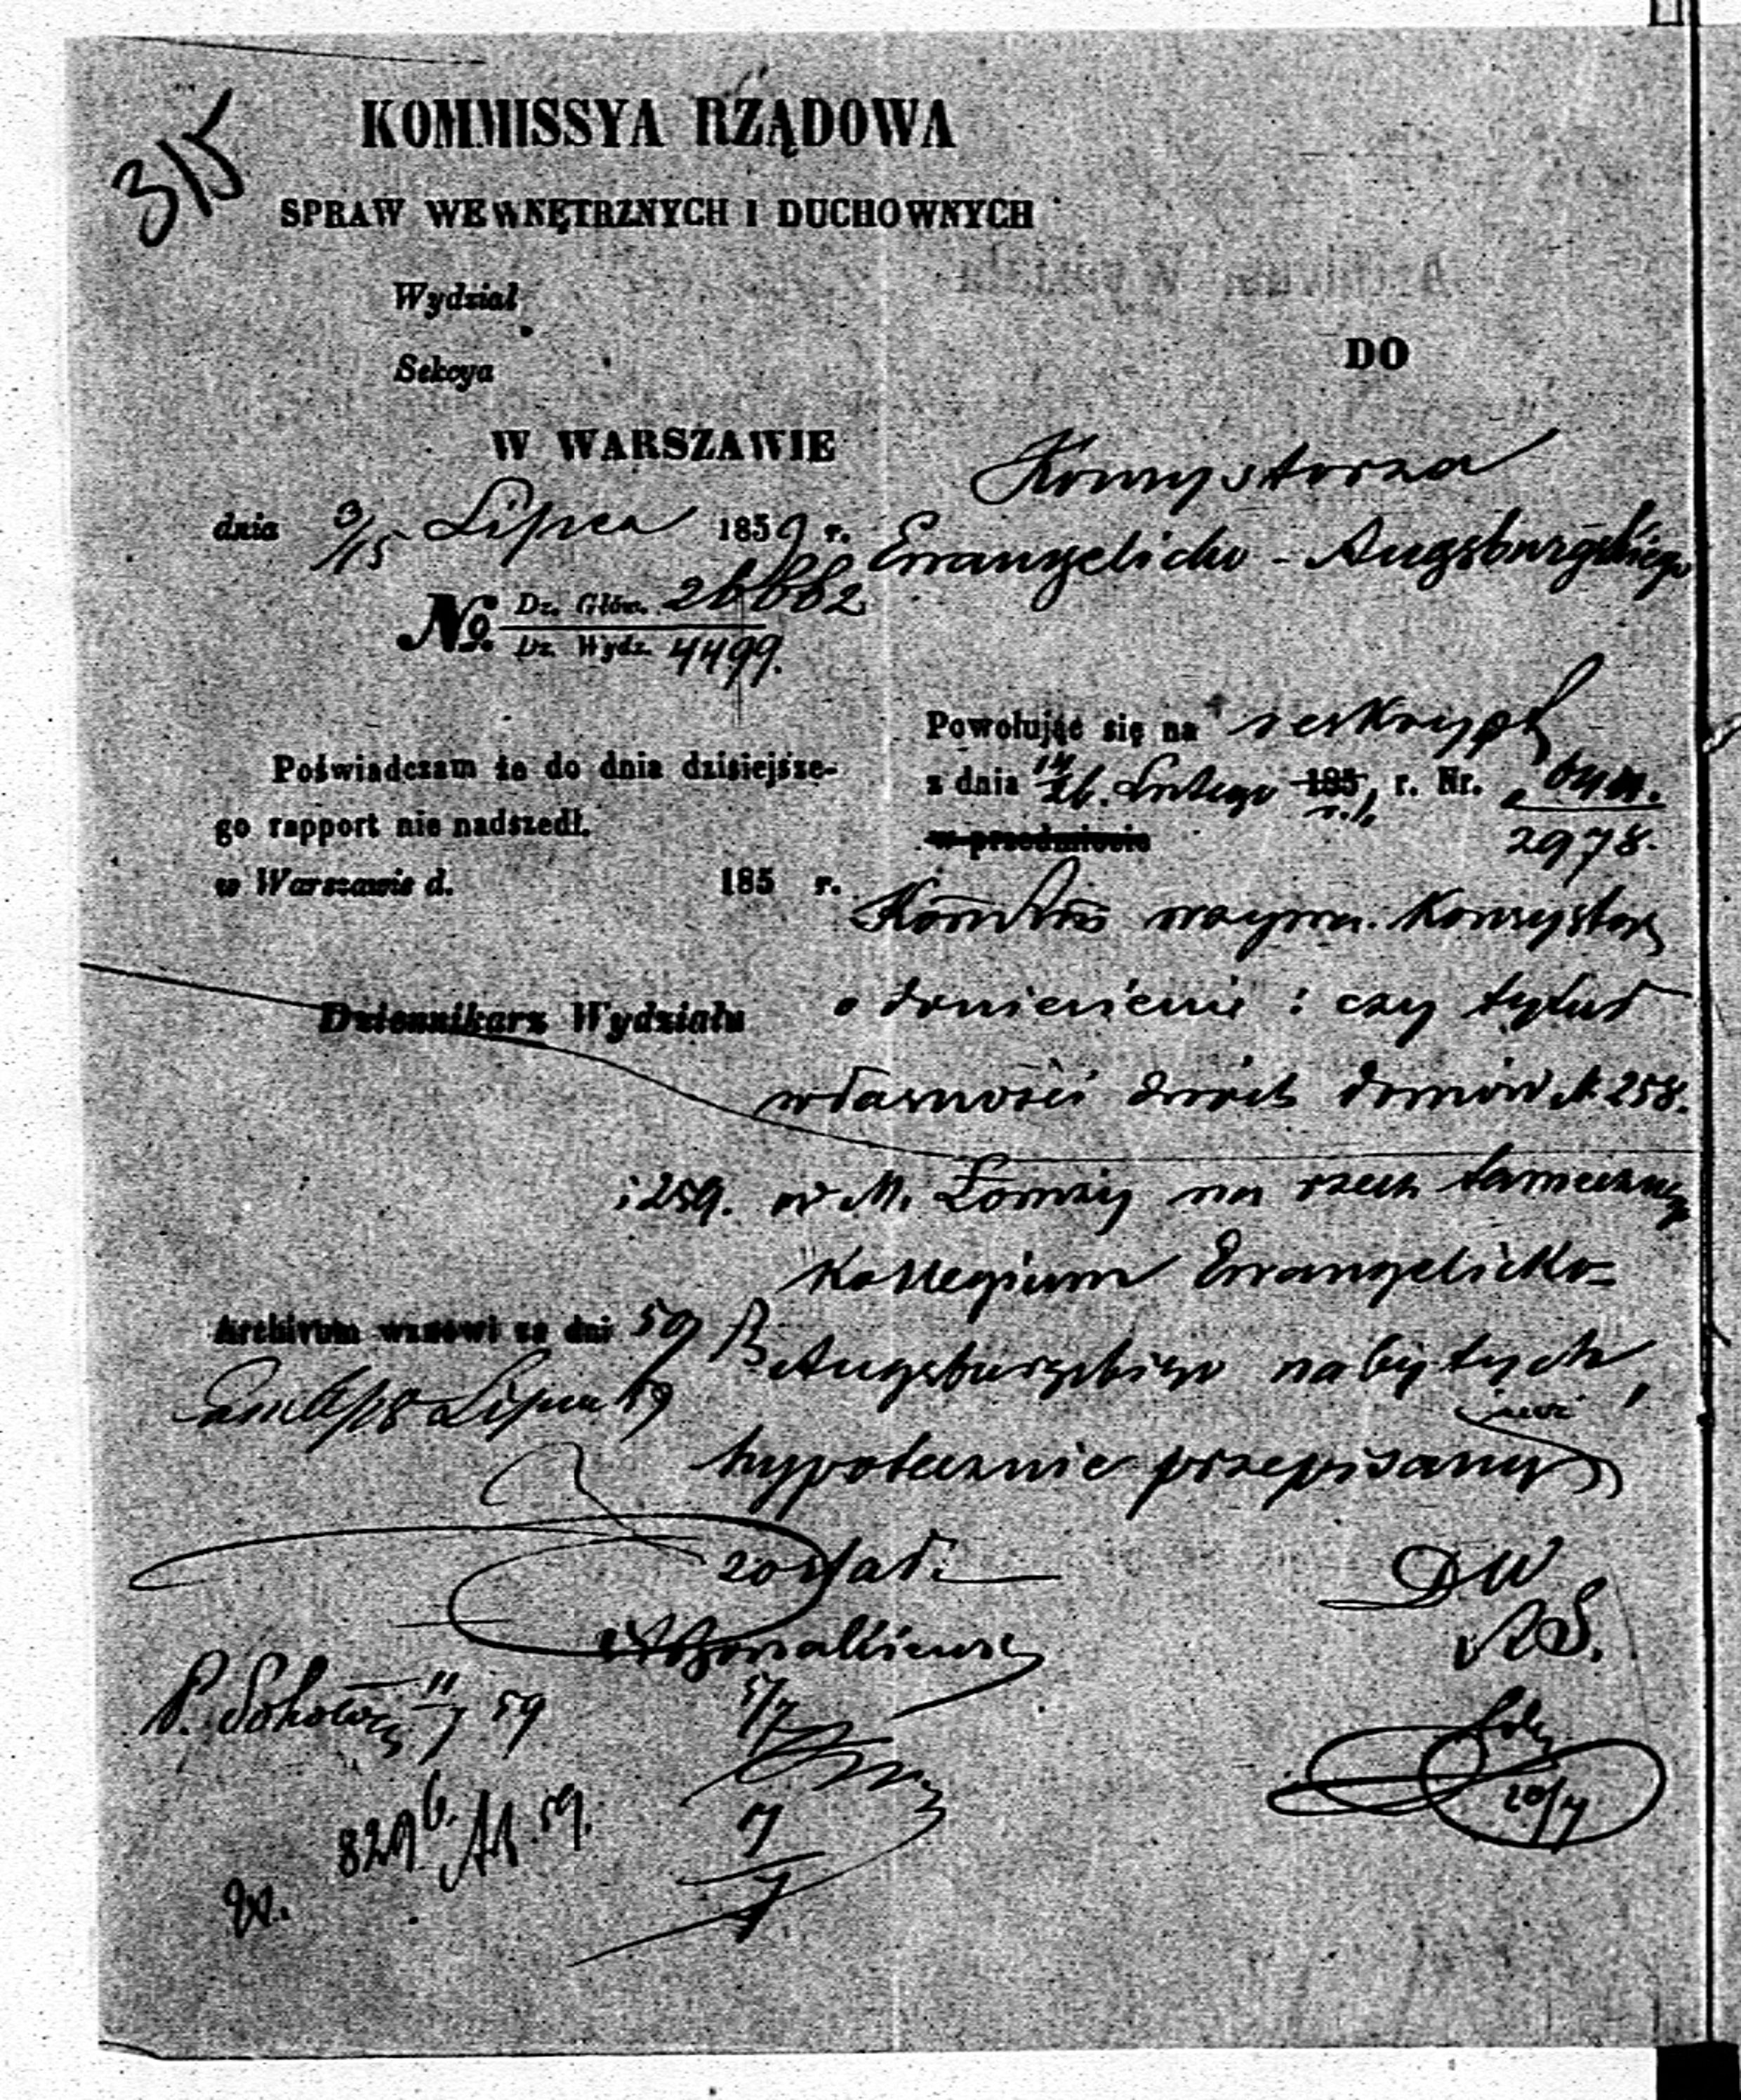 315
KOMMISSYA RZĄDOWA
SPRAW WEWNĘTRZNYCH I DUCHOWNYCH
Wydział
Sekcya
W WARSZAWIE
dnia 3/15 Lipca 1859 r.
No. Dz. Głów. 26662
Dz. Wydz. 4499.
Poświadczam że do dnia dzisiejsze-
go rapport nie nadszedł.
w Warszawie d. 185 r.
Dziennikarz Wydziału
Archivum wznowi za dni 50
Lipca 59
DO
Konsystorza
Ewangelicko - Augsburgskiego
Powołując się na reskrypt
z dnia 14/26. Lutego 185 r. b. r. Nr.
2978.
w przedmiocie
wzywa Konsystorz
o doniesienie: czy tytuł
własności dwóch domów N. 258.
i 259. w M. Łomży na rzecz tamecznego
Kollegium Ewangelicko-
Augsburgskiego nabytych,
jusz
hypotecznie przepisany
został.
DW
NS.
P. Sokołow 11/7 59
5/7
20/7
7
7
59.